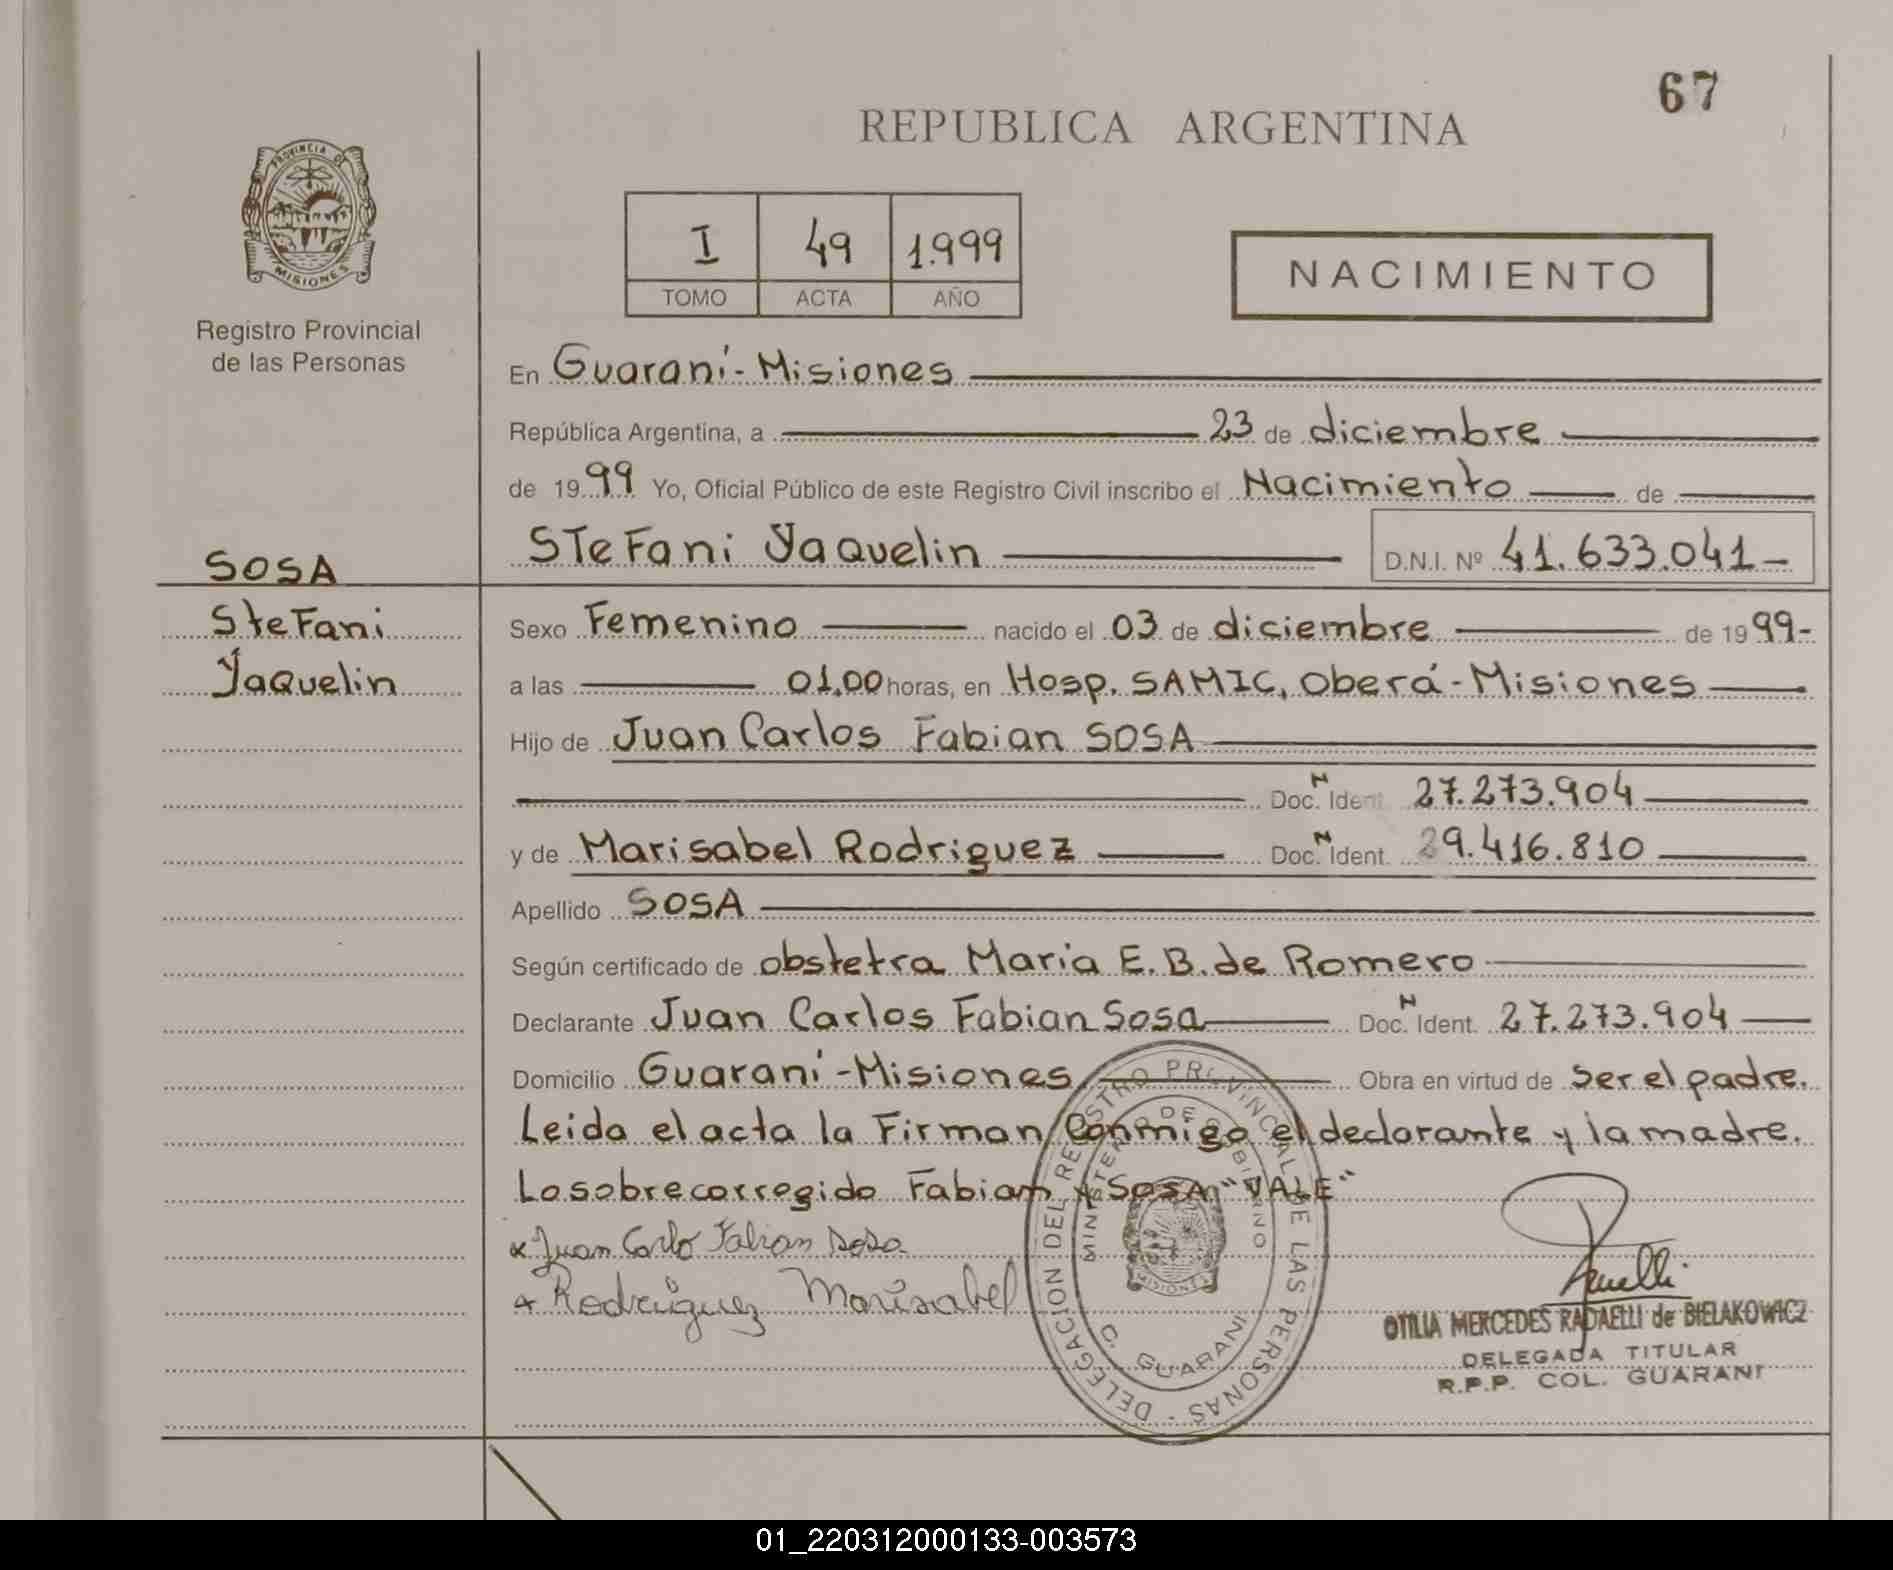 67
REPUBLICA ARGENTINA
PROVINCIA DE
MISIONES
Registro Provincial
de las Personas
I 49 1.999
TOMO ACTA AÑO
NACIMIENTO
En Guaraní - Misiones
República Argentina, a 23 de diciembre
de 1999 Yo, Oficial Público de este Registro Civil inscribo el Nacimiento de
SOSA
SteFani
Yaquelin
STeFani Yaquelin D.N.I. Nº 41.633.041-
Sexo Femenino nacido el 03 de diciembre de 1999-
a las 01,00 horas, en Hosp. SAMIC, Oberá - Misiones
Hijo de Juan Carlos Fabian SOSA
Doc. N Ident 27.273.904
y de Marisabel Rodriguez Doc. N Ident. 29.416.810
Apellido SOSA
Según certificado de obstetra Maria E. B. de Romero
Declarante Juan Carlos Fabian Sosa Doc. N Ident. 27.273.904
Domicilio Guaraní - Misiones Obra en virtud de ser el padre.
Leida el acta la Firman conmigo el declarante y la madre.
Lo sobrecorregido Fabian y SOSA "VALE"
x Juan Carlo Fabian sosa
x Rodriguez Marisabel
DELEGACION DEL REGISTRO PROVINCIAL DE LAS PERSONAS -
MINISTERIO DE GOBIERNO
MISIONES
C. GUARANI
OTILIA MERCEDES RADAELLI de BIELAKOWICZ
DELEGADA TITULAR
R.P.P. COL. GUARANI
01_220312000133-003573